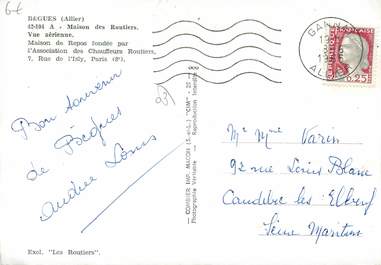 6€
BEGUES (Allier)
Maison des Routiers.
Vue aérienne.
Maison de Repos fondée par
l'Association des Chauffeurs Routiers,
7, Rue de l'Isly, Paris (8e).
GANNAT
ALLIER
0,25
Bon souvenir
de Bègues
Andrée Louis
COMBIER IMP. MACON (S.-et-L.) "CIM"
Photographie Véritable - Reproduction Interdite
Mr Mme Varin
92 rue Louis Blanc
Caudebec les Elbeuf
Seine Maritime
Excl. "Les Routiers".